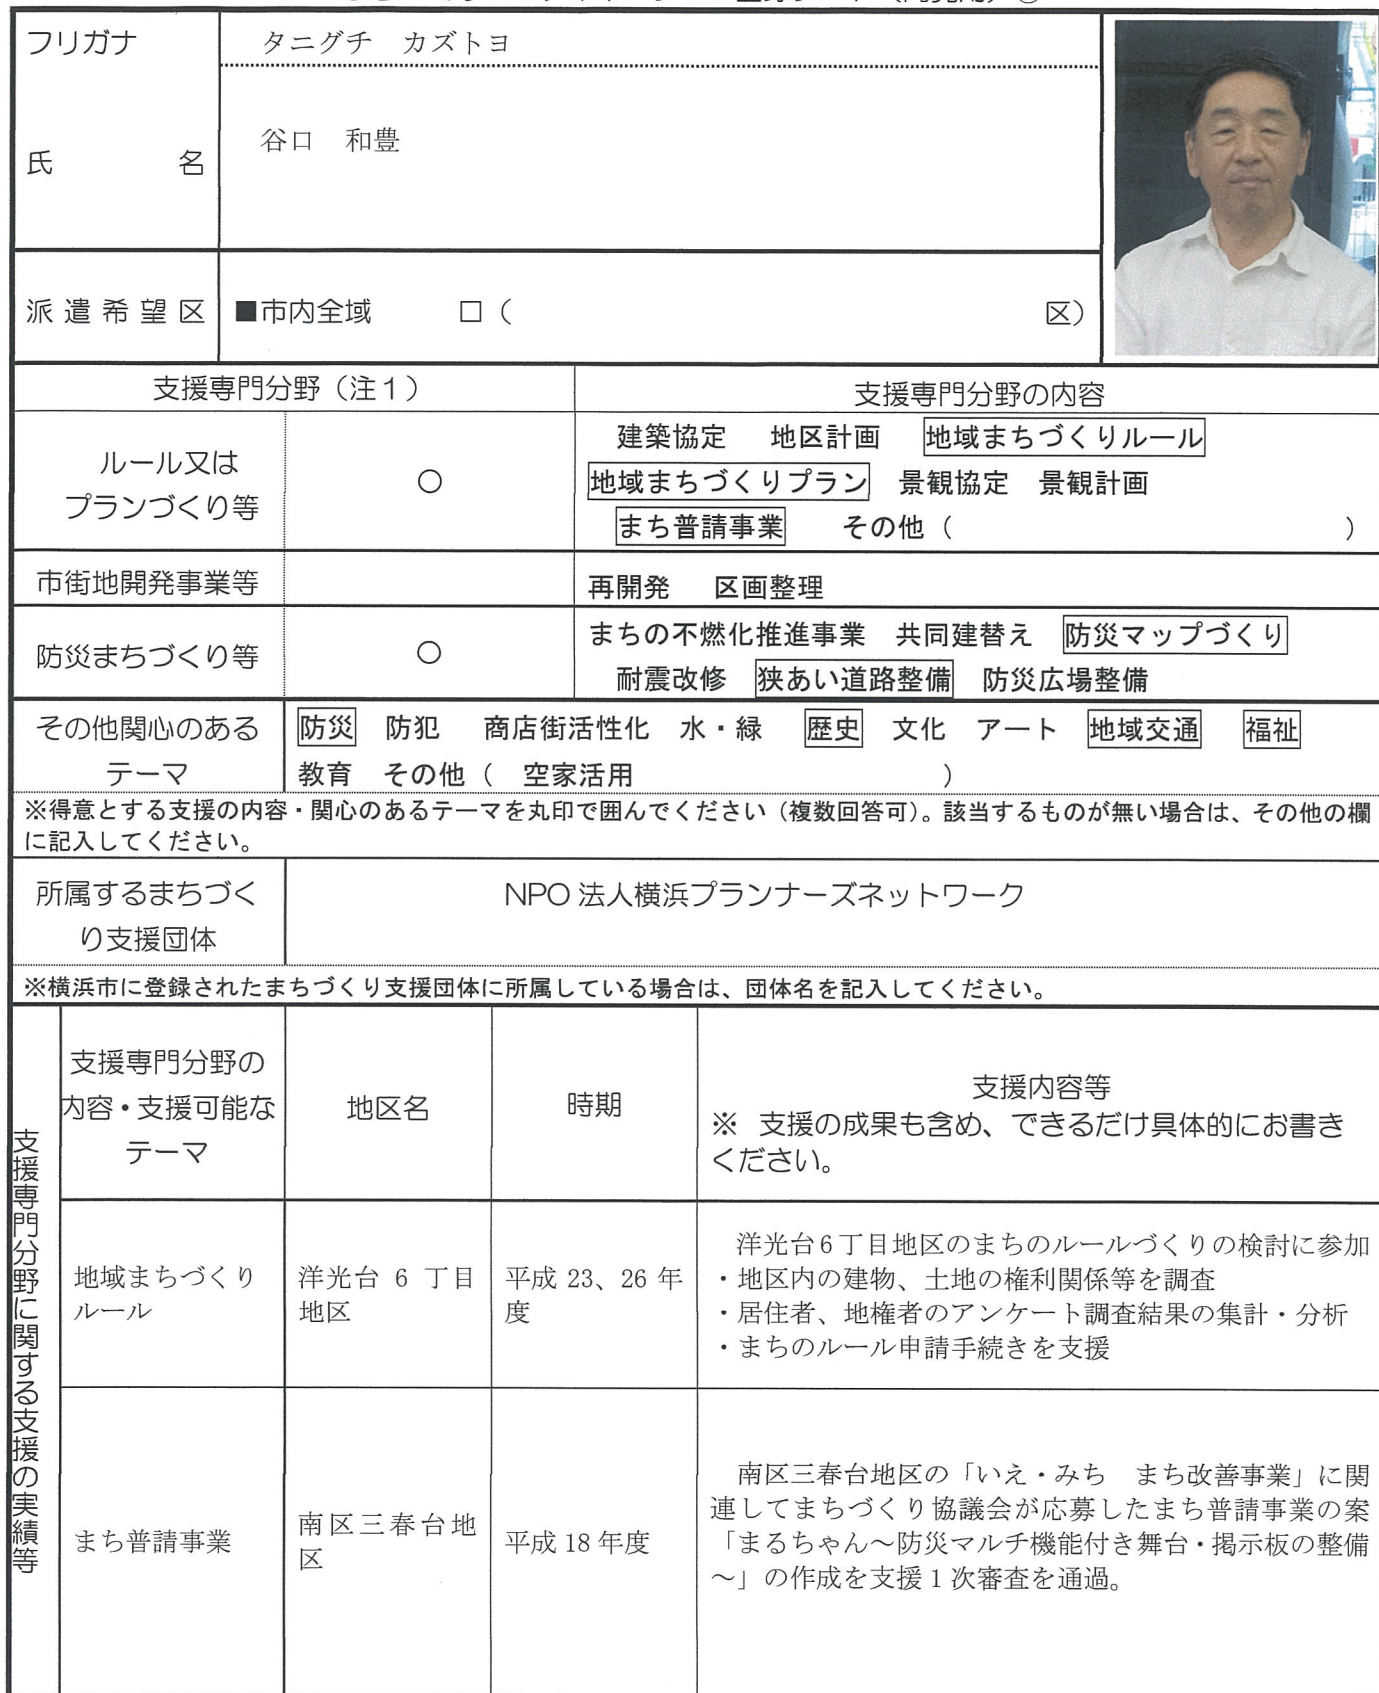 フリガナ
タニグチ　カズトヨ
氏　　　　名
谷口　和豊
派遣希望区
■市内全域　　　□（　　　　　　　　　　　　　　　　　　　区）
支援専門分野（注１）
支援専門分野の内容
ルール又は
プランづくり等
○
建築協定　地区計画　地域まちづくりルール
地域まちづくりプラン　景観協定　景観計画
まち普請事業　　その他（　　　　　　　　　　　　　　）
市街地開発事業等
再開発　区画整理
防災まちづくり等
○
まちの不燃化推進事業　共同建替え　防災マップづくり
耐震改修　狭あい道路整備　防災広場整備
その他関心のある
テーマ
防災　防犯　商店街活性化　水・緑　歴史　文化　アート　地域交通　福祉
教育　その他（　空家活用　　　　　　　　　　　）
※得意とする支援の内容・関心のあるテーマを丸印で囲んでください（複数回答可）。該当するものが無い場合は、その他の欄
に記入してください。
所属するまちづく
り支援団体
NPO 法人横浜プランナーズネットワーク
※横浜市に登録されたまちづくり支援団体に所属している場合は、団体名を記入してください。
支援専門分野に関する支援の実績等
支援専門分野の
内容・支援可能な
テーマ
地区名
時期
支援内容等
※　支援の成果も含め、できるだけ具体的にお書き
ください。
地域まちづくり
ルール
洋光台 6 丁目
地区
平成 23、26 年
度
洋光台6丁目地区のまちのルールづくりの検討に参加
・地区内の建物、土地の権利関係等を調査
・居住者、地権者のアンケート調査結果の集計・分析
・まちのルール申請手続きを支援
まち普請事業
南区三春台地
区
平成 18 年度
南区三春台地区の「いえ・みち　まち改善事業」に関
連してまちづくり協議会が応募したまち普請事業の案
「まるちゃん～防災マルチ機能付き舞台・掲示板の整備
～」の作成を支援1次審査を通過。